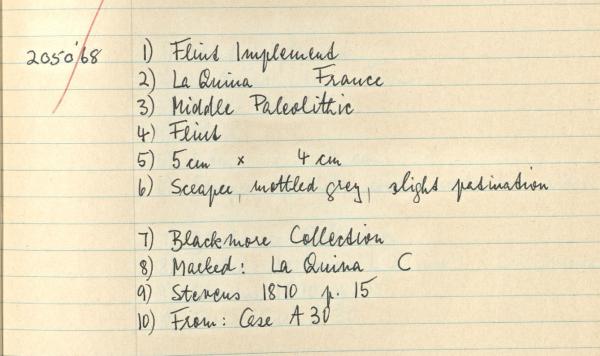 2050'68 1) Flint Implement
2) La Quina France
3) Middle Paleolithic
4) Flint
5) 5 cm x 4 cm
6) Scraper, mottled grey, slight patination
7) Blackmore Collection
8) Marked: La Quina C
9) Stevens 1870 p. 15
10) From: Case A 30